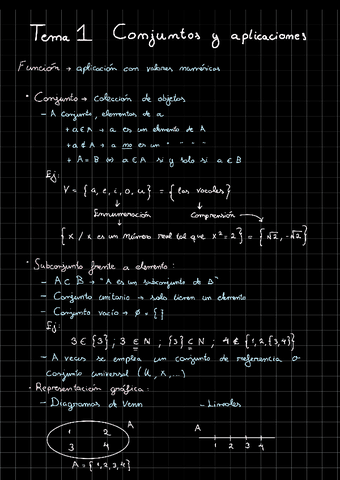 Tema 1 Conjuntos y aplicaciones
Función → aplicación con valores numéricos
• Conjunto → colección de objetos
- A conjunto, elementos de a
+ a ∈ A → a es un elemento de A
+ a ∉ A → a no es un " " " "
+ A = B ⇔ a ∈ A si y solo si a ∈ B
Ej:
V = { a, e, i, o, u } = { las vocales }
Ennumeración Comprensión
{ x / x es un número real tal que x² = 2 } = { √2, -√2 }
• Subconjunto frente a elemento:
- A ⊂ B → "A es un subconjunto de B"
- Conjunto unitario → solo tienen un elemento
- Conjunto vacío → ∅ = { }
Ej:
3 ∈ {3} ; 3 ∈ N ; {3} ⊆ N ; 4 ∉ {1, 2, {3, 4}}
- A veces se emplea un conjunto de referencia o
conjunto universal (U, X, ...)
• Representación gráfica:
- Diagramas de Venn - Lineales
A
1 2
3 4
A = { 1, 2, 3, 4 }
A
1 2 3 4